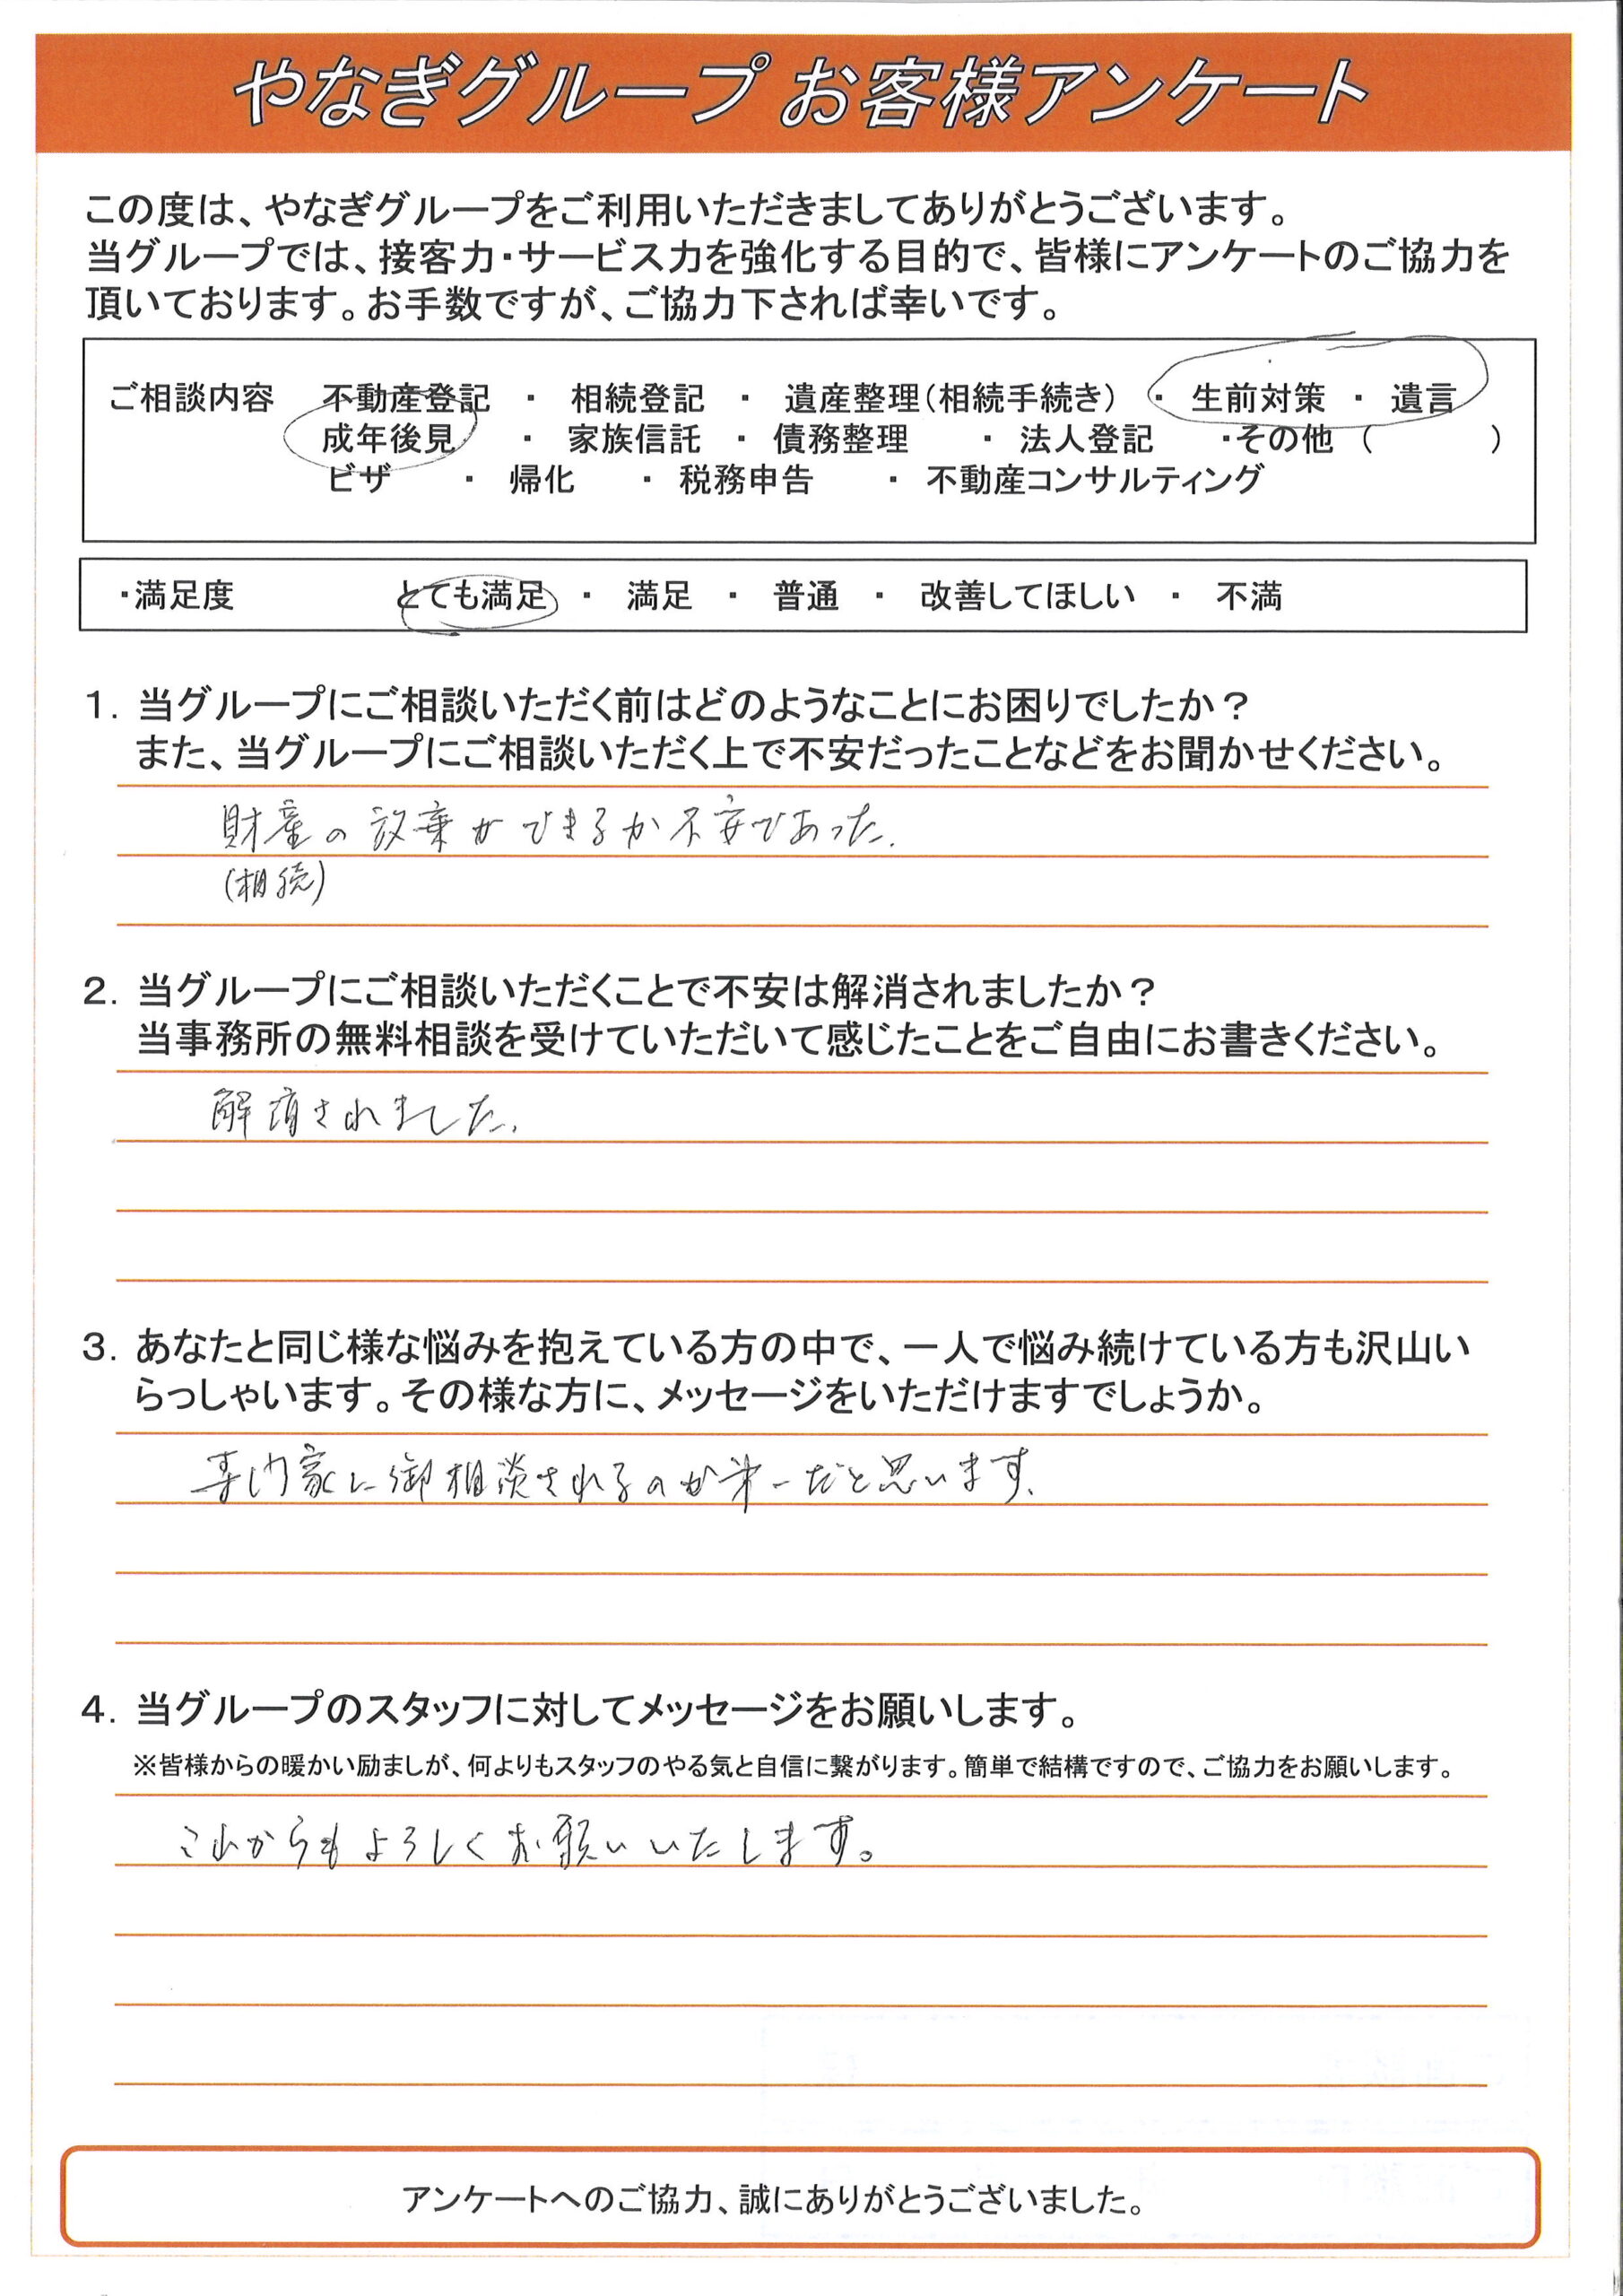 やなぎグループ お客様アンケート
この度は、やなぎグループをご利用いただきましてありがとうございます。
当グループでは、接客力・サービス力を強化する目的で、皆様にアンケートのご協力を
頂いております。お手数ですが、ご協力下されば幸いです。
ご相談内容 不動産登記 ・ 相続登記 ・ 遺産整理(相続手続き) ・ 生前対策 ・ 遺言
成年後見 ・ 家族信託 ・ 債務整理 ・ 法人登記 ・その他 ( )
ビザ ・ 帰化 ・ 税務申告 ・ 不動産コンサルティング
・満足度 とても満足 ・ 満足 ・ 普通 ・ 改善してほしい ・ 不満
1. 当グループにご相談いただく前はどのようなことにお困りでしたか?
また、当グループにご相談いただく上で不安だったことなどをお聞かせください。
財産の放棄ができるか不安であった.
(相続)
2. 当グループにご相談いただくことで不安は解消されましたか?
当事務所の無料相談を受けていただいて感じたことをご自由にお書きください。
解消されました.
3. あなたと同じ様な悩みを抱えている方の中で、一人で悩み続けている方も沢山い
らっしゃいます。その様な方に、メッセージをいただけますでしょうか。
専門家に御相談されるのが第一だと思います.
4. 当グループのスタッフに対してメッセージをお願いします。
※皆様からの暖かい励ましが、何よりもスタッフのやる気と自信に繋がります。簡単で結構ですので、ご協力をお願いします。
これからもよろしくお願いいたします。
アンケートへのご協力、誠にありがとうございました。